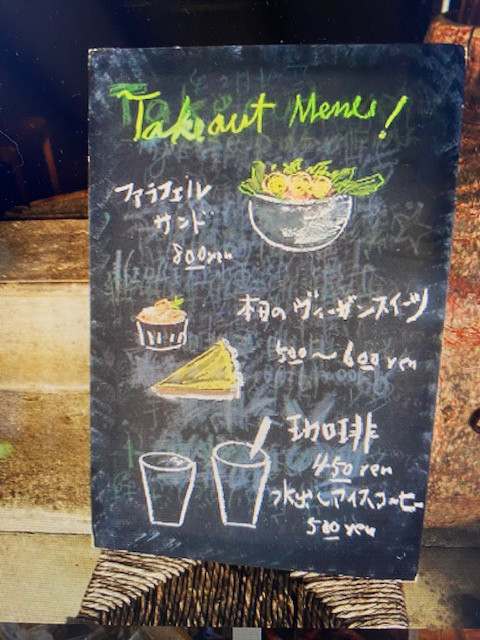 Takeout Menu!
ファラフェル
サンド
800yen
本日のヴィーガンスイーツ
500〜600yen
珈琲
450yen
水出しアイスコーヒー
500yen